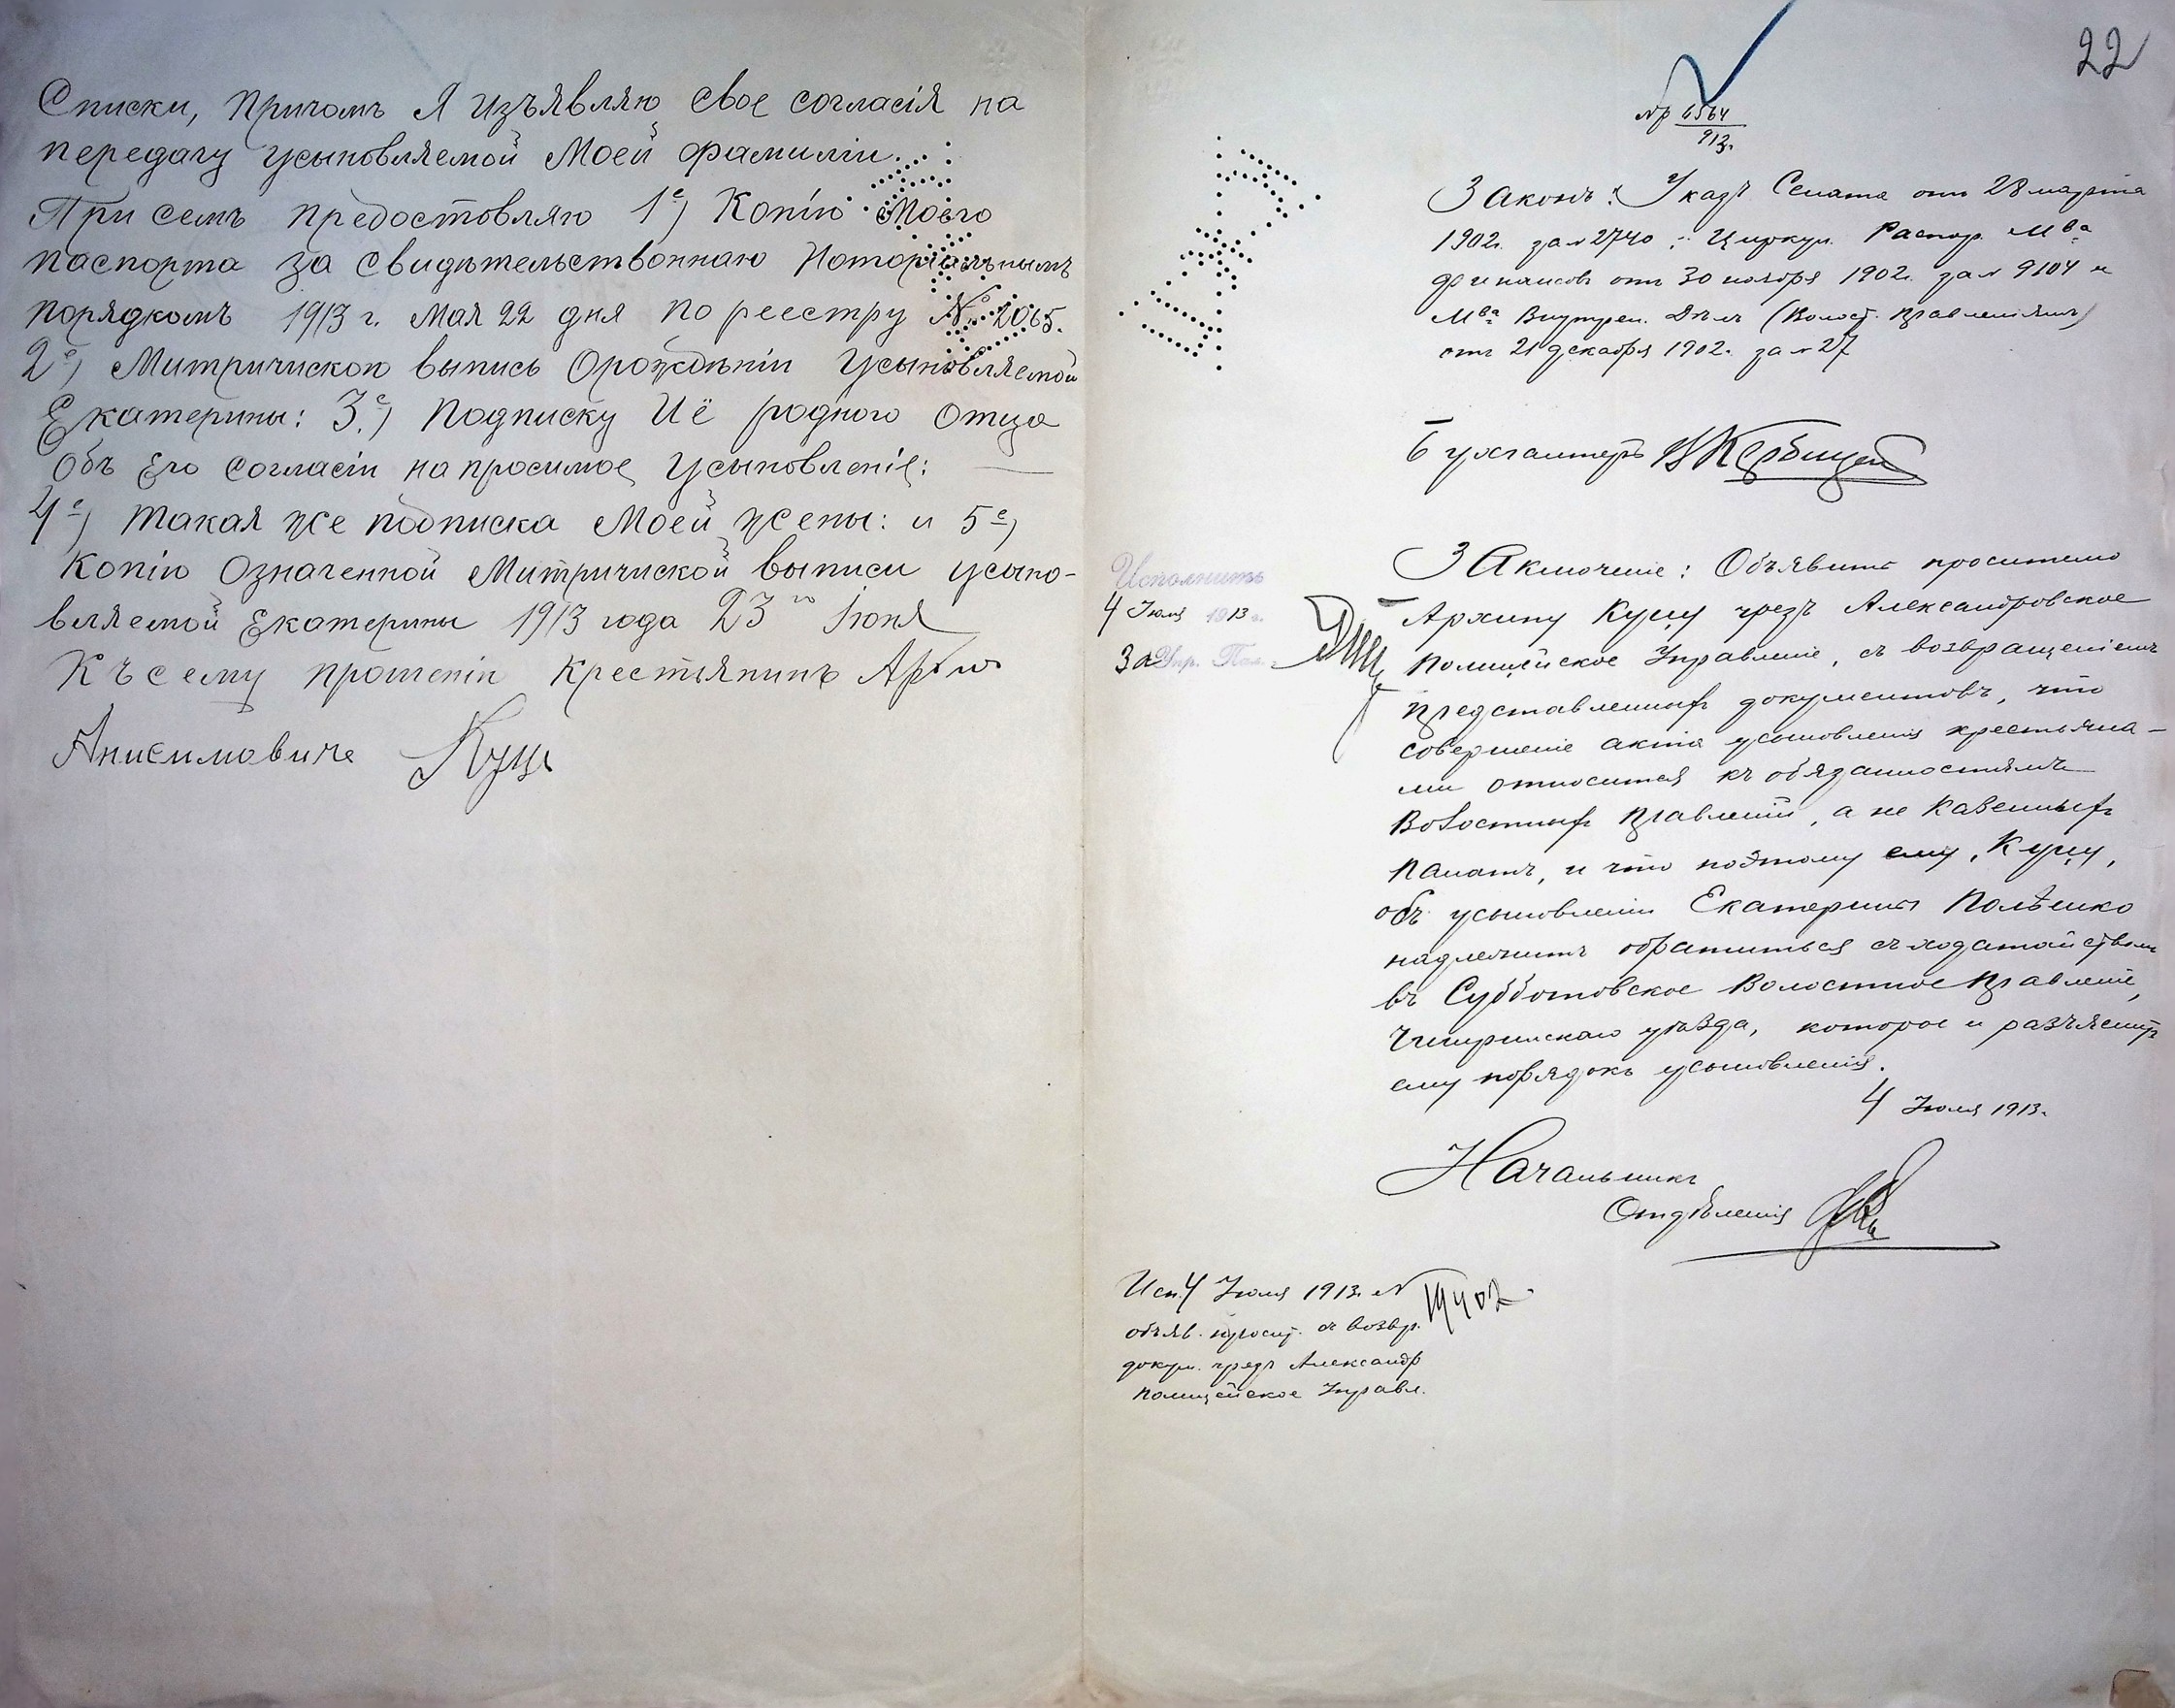 Списки, Причомъ Я изъявляю свое согласія на
передачу усыновляемой Моей фамиліи.
При семъ предоставляю 1е) Копію Моего
паспорта за свидѣтельствоннаю Нотаріальнымъ
порядкомъ 1913 г. Мая 22 дня по реестру № 2065.
2е) Митрическою выпись Орожденіи Усыновляемой
Екатерины: 3е) Подписку Иё родного отца
Объ Его согласіи на просимое Усыновленіе:
4е) Такая же подписка Моей жены: и 5е)
Копію Означенной Митрической выписи усыно-
вляемой Екатерины 1913 года 23го Іюня
Къ сему прошенію Крестьянинъ
Анисимовиче Куцъ
22
№ 6564
913.
Законъ: Указъ Сената отъ 28 марта
1902г. за № 2740; Циркул. Распор. Мва
финансовъ отъ 30 ноября 1902г. за № 9104 и
Мва Внутрен. Дѣлъ (Волост. Правленіямъ)
отъ 21 декабря 1902г. за № 27
Бухгалтеръ
Исполнить
4 Іюля 1913 г.
За Упр. Пал.
Заключеніе: Объявить просителю
Архипу Куцу чрезъ Александровское
Полицейское Управленіе, съ возвращеніемъ
представленныхъ документовъ, что
совершеніе акта усыновленія крестьяна-
ми относится къ обязанностямъ
Волостныхъ Правленій, а не Казенныхъ
Палатъ, и что поэтому ему, Куцу,
объ усыновленіи Екатерины Полѣнко
надлежитъ обратиться съ ходатайствомъ
въ Субботовское Волостное Правленіе,
Чигиринскаго уѣзда, которое и разъяснитъ
ему порядокъ усыновленія.
4 Іюля 1913г.
Начальникъ
Отдѣленія
Исп. 4 Іюля 1913г. № 19402
объяв. просит. съ возвр.
докум. чрезъ Александр
Полицейское Управл.